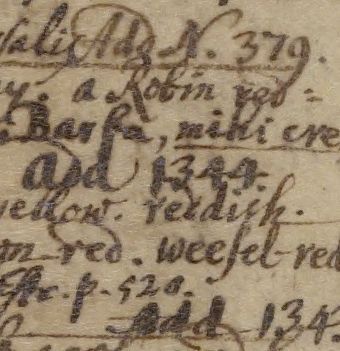 Add N. 379.
a Robin red=
Barba, mihi cre
Add 1344.
yellow. reddish.
red. weesel-red
p. 520.
Add 134